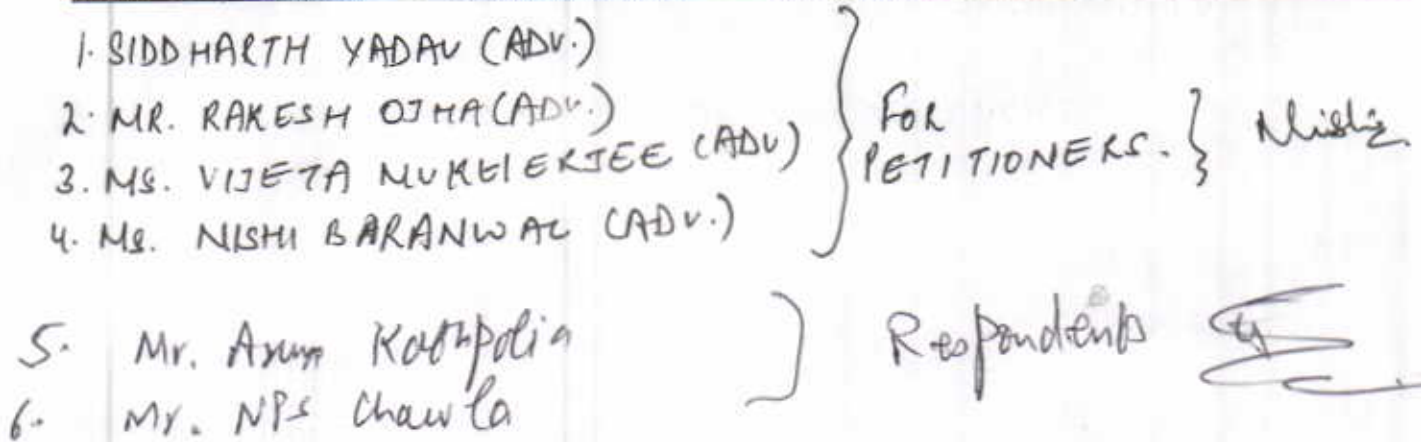 1. SIDDHARTH YADAV (ADV.)
2. MR. RAKESH OJHA (ADV.)
3. MS. VIJETA MUKHERJEE (ADV)
4. MS. NISHI BARANWAL (ADV.)
FOR
PETITIONERS.
5. Mr. Arun Kathpalia
6. Mr. NPS Chawla
Respondents